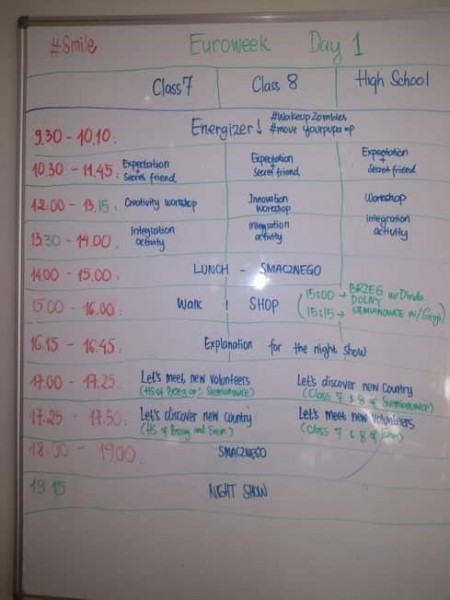 #Smile Euroweek Day 1
Class 7 Class 8 High School
9.30 - 10.10: Energizer! #WakeupZombies
#move yourpupa
10.30 - 11.45: Expectation + Secret friend Expectation + Secret friend Expectation + Secret friend
12.00 - 13.15: Creativity Workshop Innovation Workshop Workshop
13.30 - 14.00: Integration activity Integration activity Integration activity
14.00 - 15.00: LUNCH - SMACZNEGO
15.00 - 16.00: Walk SHOP (15:00 → BRZEG DOLNY w/Dinda
15:15 → SIEMIANOWICE w/
16.15 - 16.45: Explanation for the night show
17.00 - 17.25: Let's meet new Volunteers Let's discover new Country
(HS of Siemianowice) (Class 7 & 8 of Siemianowice)
17.25 - 17.50: Let's discover new Country Let's meet new Volunteers
(HS of Brzeg and Siem) (Class 7 & 8 of
18.00 - 19.00: SMACZNEGO
19.15 NIGHT SHOW